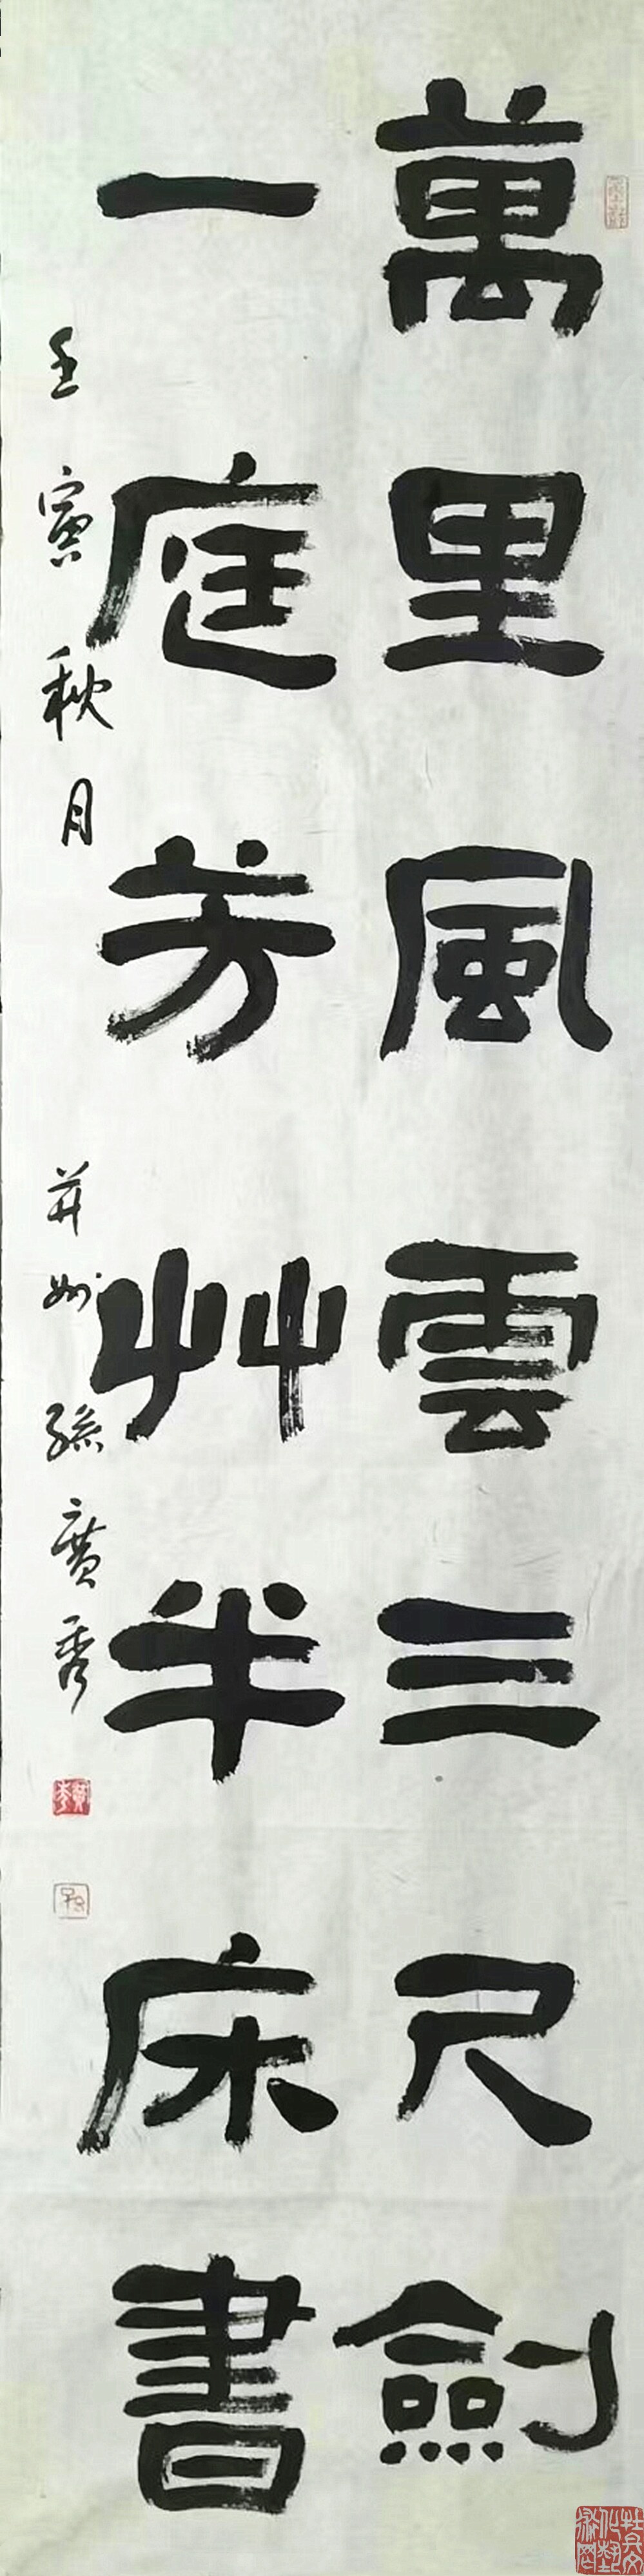 萬里風雲三尺劍
一庭芳艸半床書
壬寅秋月 并州 孫廣秀